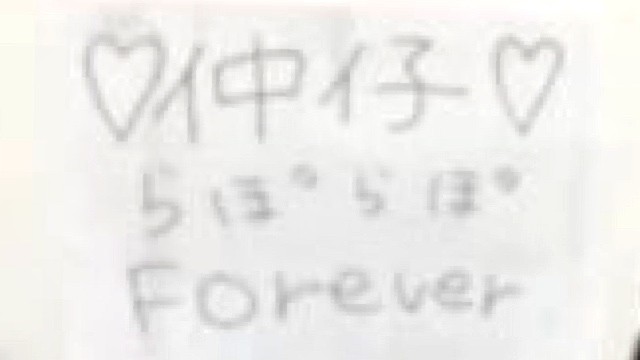 ♡仲仔♡
らぽらぽ
Forever